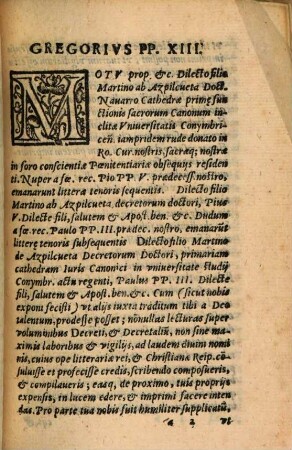 GREGORIVS PP. XIII.
MOTV prop. &c. Dilecto filio
Martino ab Azpilcueta Doct.
Nauarro Cathedræ primę fun
ctionis sacrorum Canonum in
clitæ Vniuersitatis Conymbri‑
ceń. iampridem rude donato in
Ro. Cur. nostris sacræq; nostræ
in foro conscientiæ Pœnitentiariæ obsequijs residen
ti. Nuper a fœ. rec. Pio PP V. prædecess. nostro,
emanarunt litteræ tenoris sequentis. Dilecto filio
Martino ab Azpilcueta, decretorum doctori, Pius
V. Dilecte fili, salutem & Apost. ben. &c. Dudum
a fœ. rec. Paulo PP. III. prædec. nostro, emanarūt
litterę tenoris subsequentis Dilecto filio Martino
de Azpilcueta Decretorum Doctori, primariam
cathedram Iuris Canonici in vniuersitate studij
Conymbr. actu regenti, Paulus PP. III. Dilecte
fili, salutem & Apost. ben. &c. Cum (sicut nobis
exponi fecisti) vt alijs iuxta traditum tibi a Deo
talentum, prodesse posset; nōnullas lecturas super
voluminibus Decreti, & Decretaliū, non sine ma‑
ximis laboribus & vigilijs, ad laudem diuini nomi
nis, cuius ope litterariæ rei, & Christianæ Reip. cō‑
suluisse et profecisse credis, scribendo composueris,
& compilaueris; easq, de proximo, tuis proprijs
expensis, in lucem edere, & imprimi facere inten
das. Pro parte tua nobis suit humiliter supplicatū,
a 2 vt